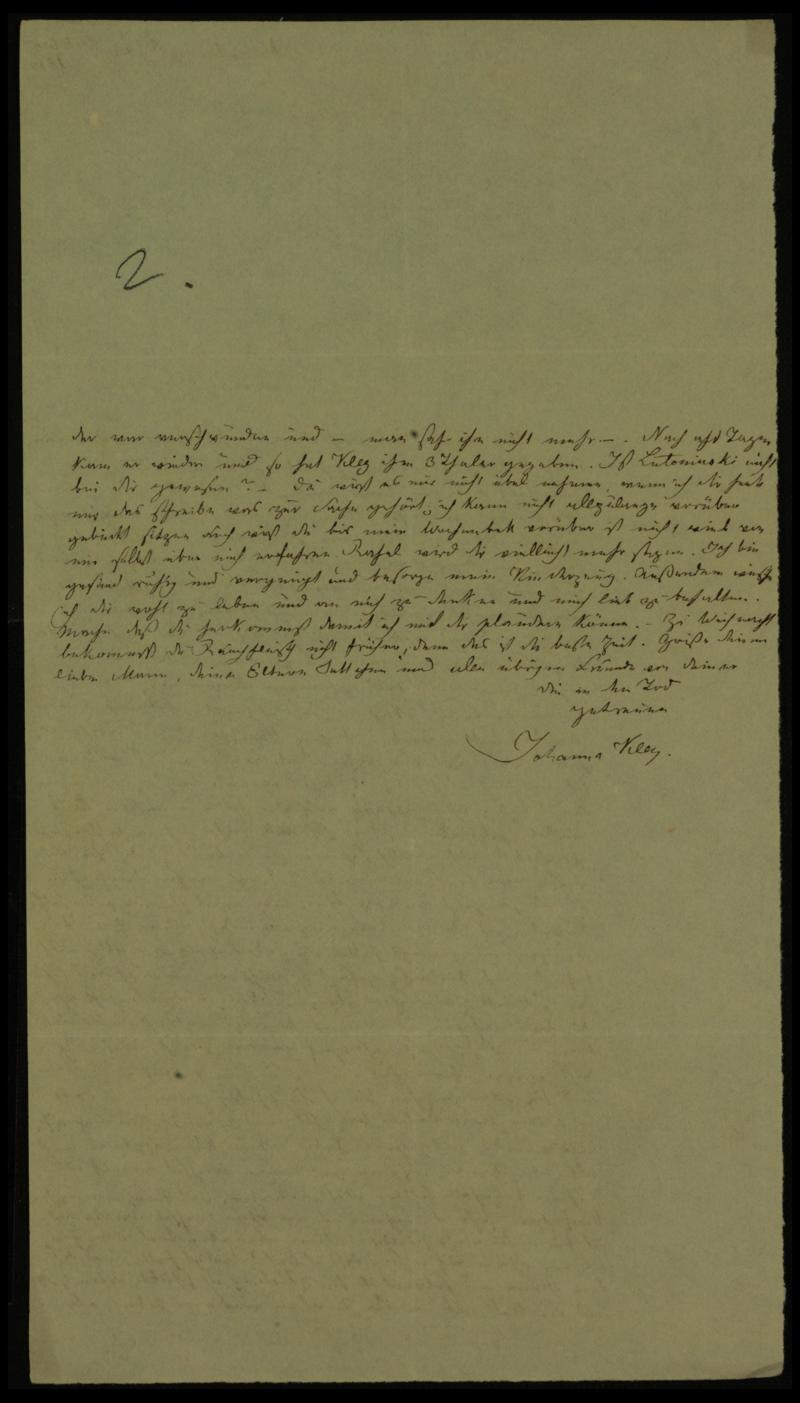 2.
der war verschwunden und – man sah ihn nicht mehr –. Nach acht Tagen
kam er wieder und so hat Kley ihm 3 Thaler gegeben. Ist Lutomirski nicht
bei dir gewesen? – Du wirst es mir nicht übel nehmen, wenn ich dir heut
nur das schreibe was zur Sache gehört, ich kann nicht allzulange vorüber
gebückt sitzen auch wirst du bis mein Wochenbett vorüber ist nicht viel von
mir selbst über mich erfahren Rahel wird dir vielleicht mehr sagen. Ich bin
gesund ruhig und vergnügt und besorge mein Kinderzeug. Außerdem wünsche
ich dir wohl zu leben und an mich zu denken und mich lieb zu behalten.
Mache daß du herkommst damit ich mit dir plaudern könne. – Zu Weihnacht
bekommst du Rauchfleisch nicht früher, denn das ist die beste Zeit. Grüße deinen
lieben Mann, deine Eltern und alle übrigen Freunde von deiner
dir in den Tod
getreuen
Johanna Kley.